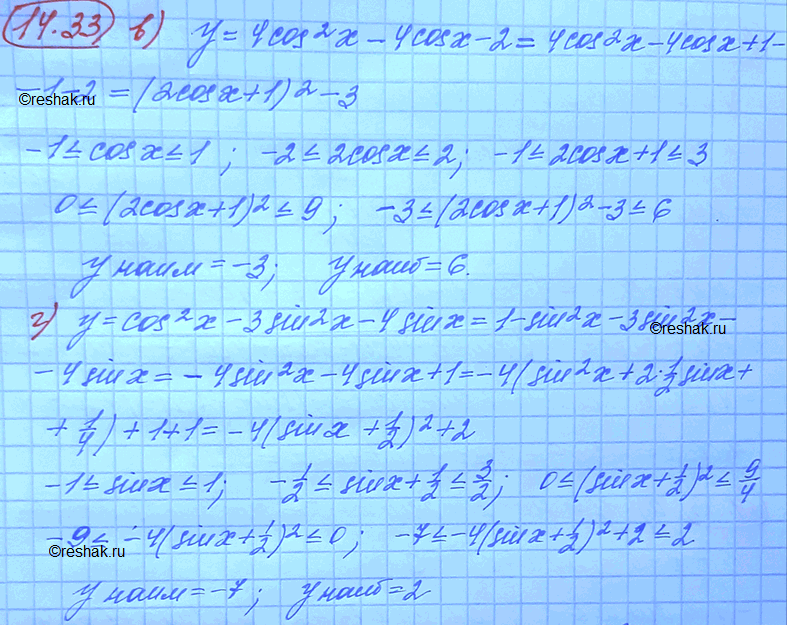 14.33 в) y = 4cos²x − 4cosx − 2 = 4cos²x − 4cosx + 1 −
− 1 − 2 = (2cosx+1)² − 3
©reshak.ru
−1 ≤ cosx ≤ 1 ; −2 ≤ 2cosx ≤ 2; −1 ≤ 2cosx+1 ≤ 3
0 ≤ (2cosx+1)² ≤ 9 ; −3 ≤ (2cosx+1)² − 3 ≤ 6
y наим = −3; y наиб = 6.
г) y = cos²x − 3sin²x − 4sinx = 1 − sin²x − 3sin²x −
©reshak.ru
− 4sinx = − 4sin²x − 4sinx + 1 = −4(sin²x + 2·½sinx +
+ ¼) + 1 + 1 = −4(sinx + ½)² + 2
−1 ≤ sinx ≤ 1; −½ ≤ sinx + ½ ≤ 3/2; 0 ≤ (sinx + ½)² ≤ 9/4
−9 ≤ −4(sinx + ½)² ≤ 0 ; −7 ≤ −4(sinx + ½)² + 2 ≤ 2
©reshak.ru
y наим = −7 ; y наиб = 2